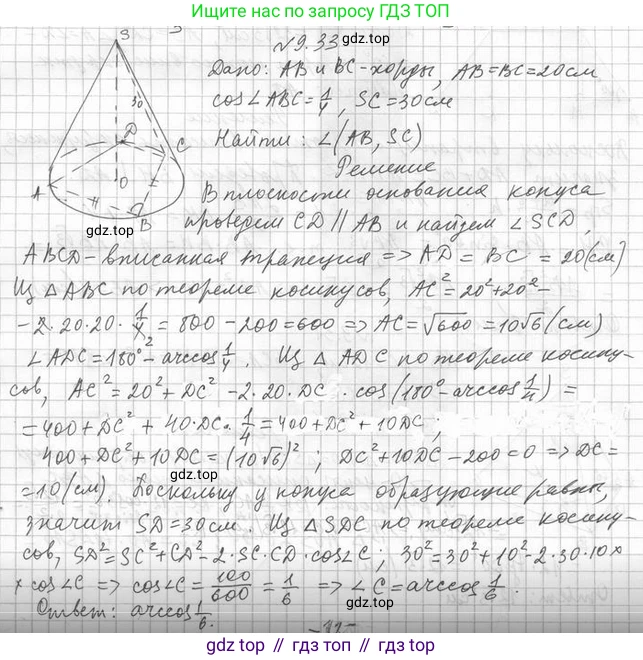 Ищите нас на сайте ГДЗ ТОП
gdz.top
№9.33
S
Дано: AB и BC - хорды, AB=BC=20см
cos∠ABC=1/4, SC=30см
30
Найти: ∠(AB, SC)
D
C
Решение
A
O
В плоскости основания конуса
B
проведем CD || AB и найдем ∠SCD,
gdz.top
ABCD - вписанная трапеция => AD = BC = 20(см)
Из △ABC по теореме косинусов, AC²=20²+20²-
-2·20·20·1/4 = 800 - 200 = 600 => AC=√600 = 10√6(см)
∠ADC=180°-arccos1/4. Из △ADC по теореме косину-
сов, AC²=20²+DC²-2·20·DC·cos(180°-arccos1/4) =
=400+DC²+40·DC·1/4=400+DC²+10DC;
400+DC²+10DC=(10√6)²; DC²+10DC-200=0 => DC=
=10(см). Поскольку у конуса образующие равны,
gdz.top
значит SD=30см. Из △SDC по теореме косину-
сов, SD²=SC²+CD²-2·SC·CD·cos∠C; 30²=30²+10²-2·30·10×
×cos∠C => cos∠C=100/600=1/6 => ∠C=arccos1/6.
Ответ: arccos1/6.
gdz.top // gdz.top // gdz.top